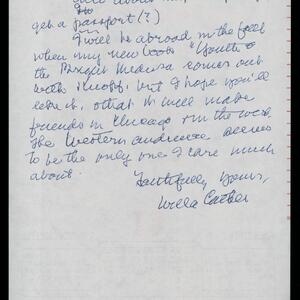 get a passport (?)
I will be abroad in the fall
when my new book "Youth &
the Bright Medusa comes out
with Knopf, but I hope you'll
like it, & that it will make
friends in Chicago & in the west.
The Western audience seems
to be the only one I care much
about.
Faithfully yours,
Willa Cather